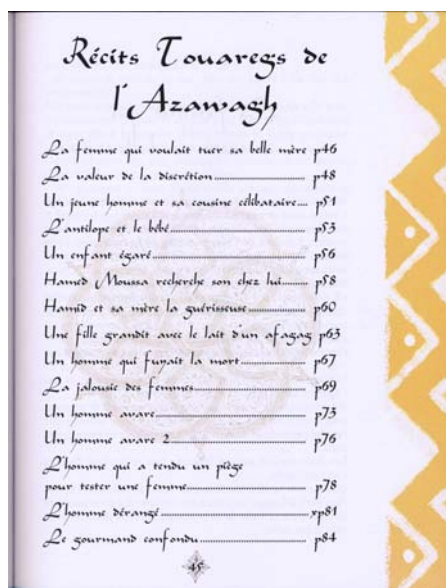 Récits Touaregs de
l'Azawagh
La femme qui voulait tuer sa belle mère p46
La valeur de la discrétion.................... p48
Un jeune homme et sa cousine célibataire.... p51
L'antilope et le bébé.................... p53
Un enfant égaré.................... p56
Hamed Moussa recherche son chez lui......... p58
Hamid et sa mère la guérisseuse............ p60
Une fille grandit avec le lait d'un afagag p63
Un homme qui fuyait la mort............ p67
La jalousie des femmes.................... p69
Un homme avare.................... p73
Un homme avare 2.................... p76
L'homme qui a tendu un piège
pour tester une femme.................... p78
L'homme dérangé.................... xp81
Le gourmand confondu.................... p84
45